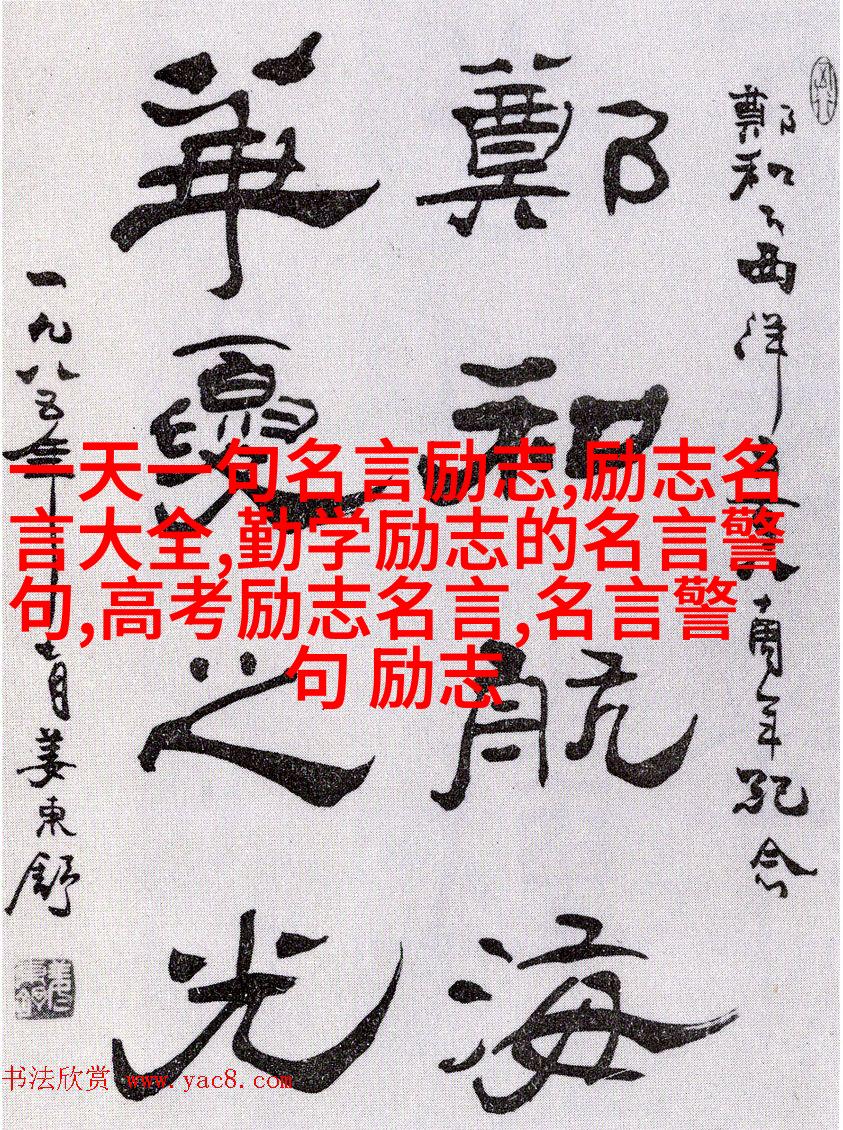 鄭和下西洋五百八十周年紀念
鄭和航海
華夏之光
一九八五年月姜東舒
一天一句名言励志,励志名
言大全,勤学励志的名言警
句,高考励志名言,名言警
句 励志
书法欣赏 www.yac8.com